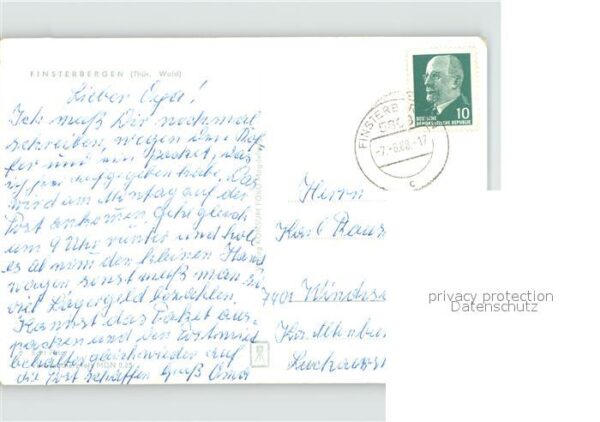 FINSTERBERGEN (Thür. Wald)
Lieber Opa!
Ich muß Dir nochmal
schreiben, wegen dem
und ein Packet, das
ich aufgegeben habe. Das
wird am Montag auf der
Post ankommen, geh gleich
um 9 Uhr runter und hole
es ab nimm den kleinen Hand
wagen sonst muß man so
viel Lagergeld bezahlen.
Kannst das Paket aus-
packen und den
behälter gleich wieder auf
die Post schaffen Gruß Oma
10
DEUTSCHE
DEMOKRATISCHE REPUBLIK
FINSTERB
-7.-6.68.-17
c
Herrn
Karl
7401
Kr. Altenbu
privacy protection
Datenschutz